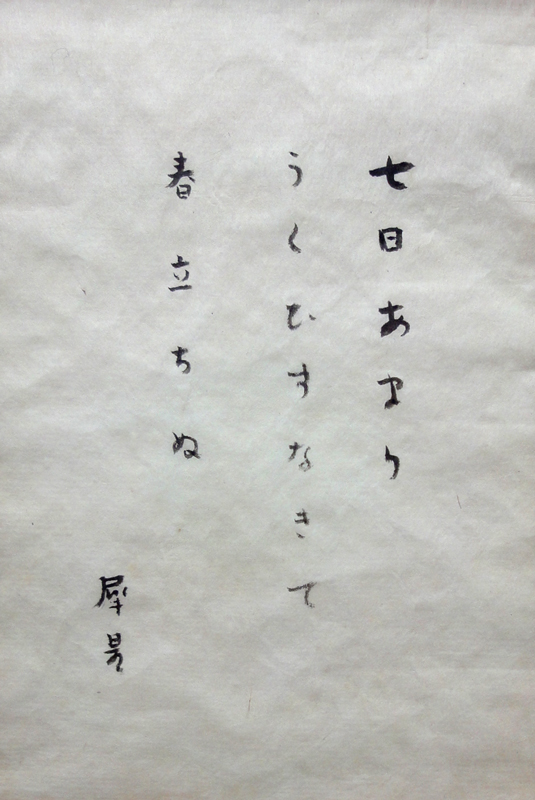 七日あまり
うくひすなきて
春立ちぬ
犀星